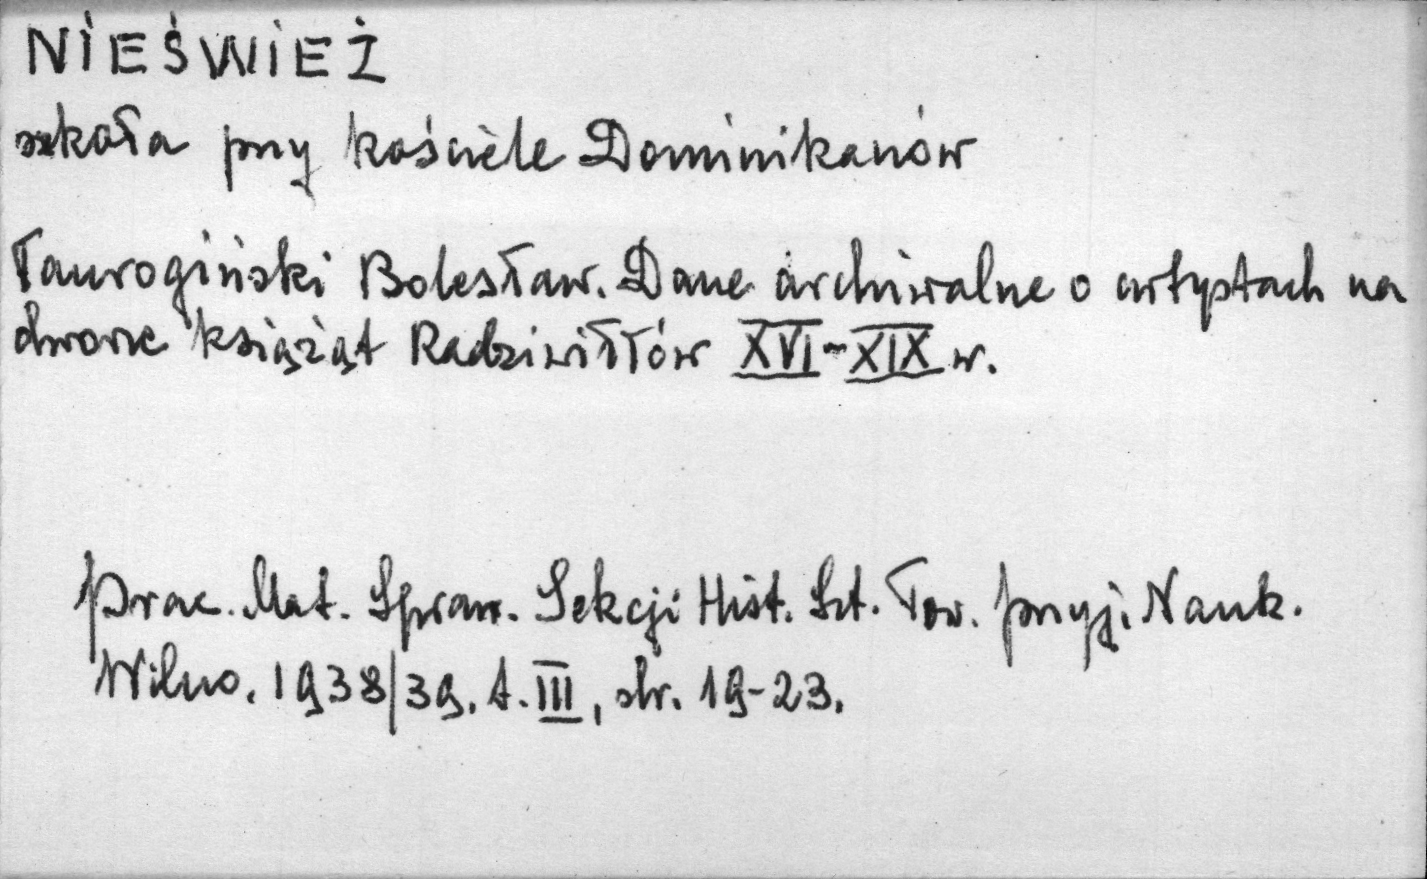 NIEŚWIEŻ
szkoła przy kościele Dominikanów
Taurogiński Bolesław. Dane archiwalne o artystach na
dworze książąt Radziwiłłów XVI-XIX w.
Prac. Mat. Spraw. Sekcji Hist. Szt. Tow. przyj. Nauk.
Wilno. 1938/39. t. III, str. 19-23.